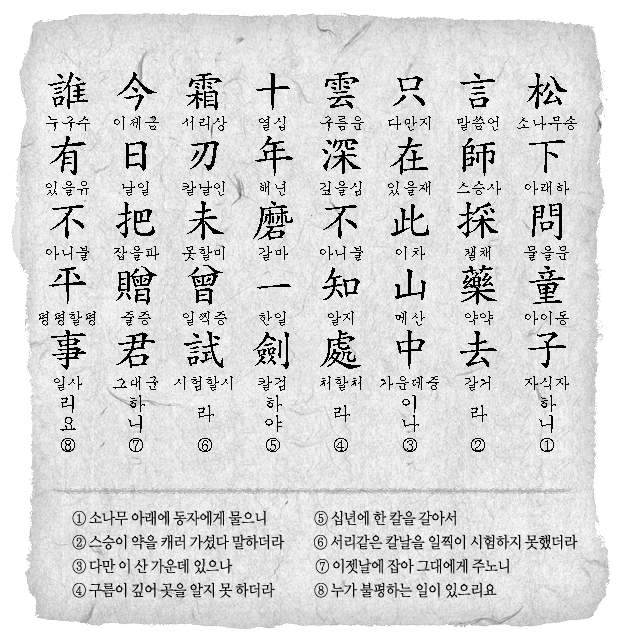 松 소나무송 下 아래하 問 물을문 童 아이동 子 자식자 하니 ①
言 말씀언 師 스승사 採 캘채 藥 약약 去 갈거 라 ②
只 다만지 在 있을재 此 이차 山 메산 中 가운데중 이나 ③
雲 구름운 深 깊을심 不 아니불 知 알지 處 처할처 라 ④
十 열십 年 해년 磨 갈마 一 한일 劍 칼검 하야 ⑤
霜 서리상 刃 칼날인 未 못할미 曾 일찍증 試 시험할시 라 ⑥
今 이제금 日 날일 把 잡을파 贈 줄증 君 그대군 하니 ⑦
誰 누구수 有 있을유 不 아니불 平 평평할평 事 일사 리요 ⑧
① 소나무 아래에 동자에게 물으니
② 스승이 약을 캐러 가셨다 말하더라
③ 다만 이 산 가운데 있으나
④ 구름이 깊어 곳을 알지 못 하더라
⑤ 십년에 한 칼을 갈아서
⑥ 서리같은 칼날을 일찍이 시험하지 못했더라
⑦ 이젯날에 잡아 그대에게 주노니
⑧ 누가 불평하는 일이 있으리요